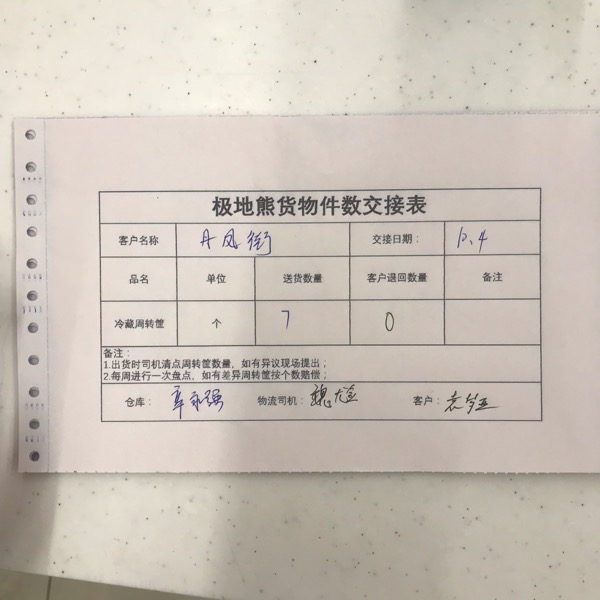 极地熊货物件数交接表
客户名称 丹凤街 交接日期： 12.4
品名 单位 送货数量 客户退回数量 备注
冷藏周转筐 个 7 0
备注：
1.出货时司机清点周转筐数量，如有异议现场提出；
2.每周进行一次盘点，如有差异周转筐按个数赔偿；
仓库： 章永强 物流司机： 客户：